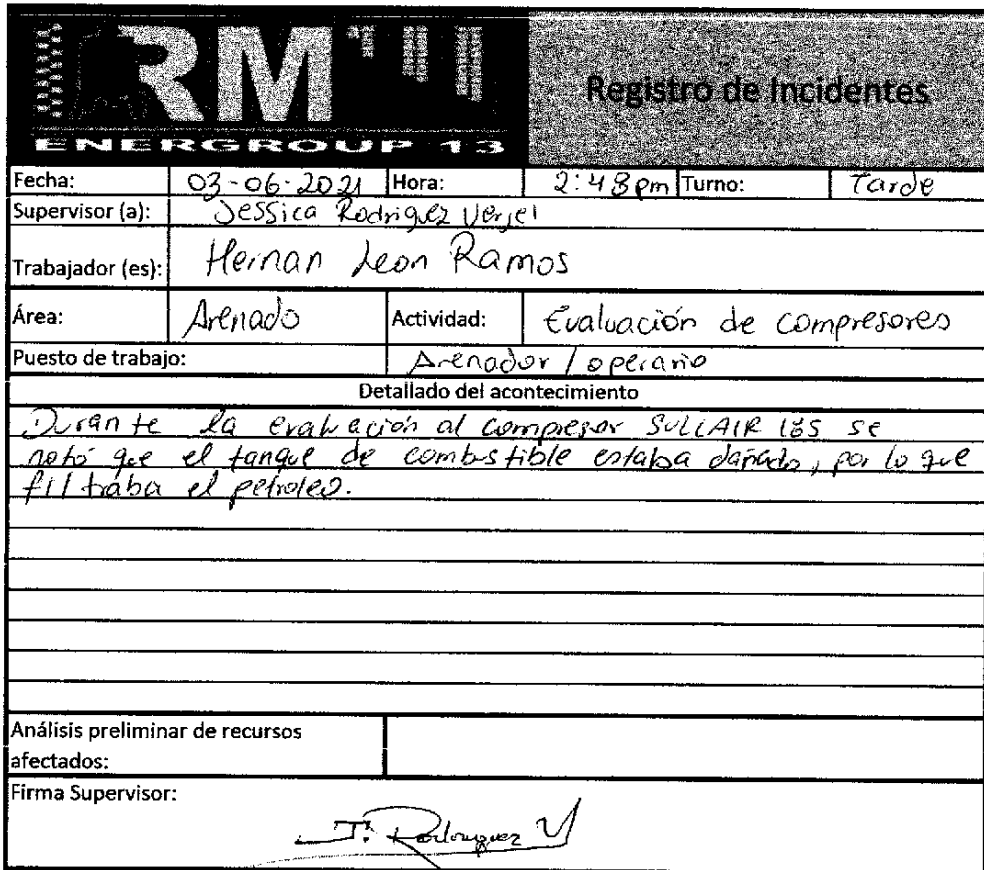 RM
ENERGROUP 13
Registro de Incidentes
Fecha: 03-06-2021 Hora: 2:48pm Turno: Tarde
Supervisor (a): Jessica Rodriguez Verjel
Trabajador (es): Hernan Leon Ramos
Área: Arenado Actividad: Evaluación de compresores
Puesto de trabajo: Arenador / operario
Detallado del acontecimiento
Durante la evaluación al compresor SULLAIR 185 se
notó que el tanque de combustible estaba dañado, por lo que
filtraba el petroleo.
Análisis preliminar de recursos
afectados:
Firma Supervisor:
J. Rodriguez V